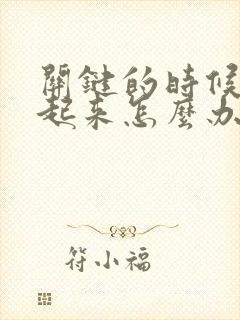 關鍵的時候
起來怎麼办
符小福